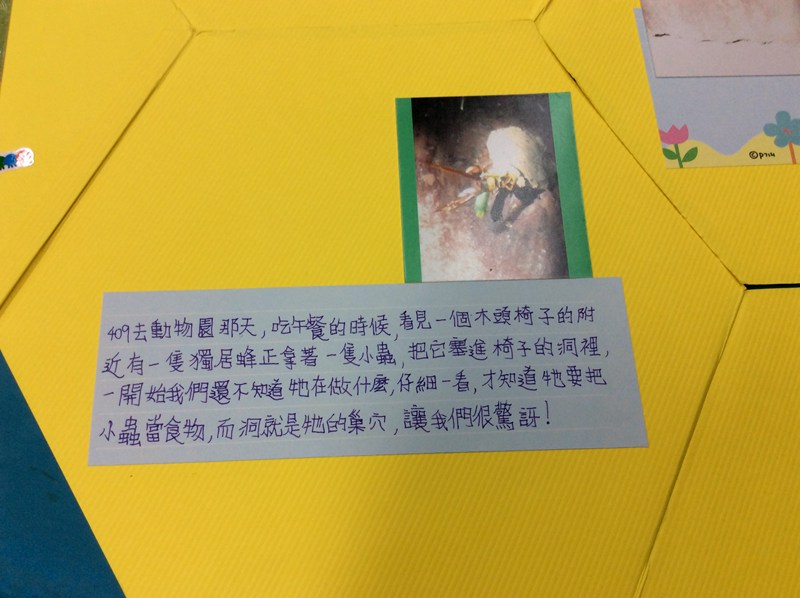 409去動物園那天,吃午餐的時候,看見一個木頭椅子的附
近有一隻獨居蜂正拿著一隻小蟲,把它塞進椅子的洞裡,
一開始我們還不知道牠在做什麼,仔細一看,才知道牠要把
小蟲當食物,而洞就是牠的巢穴,讓我們很驚訝!